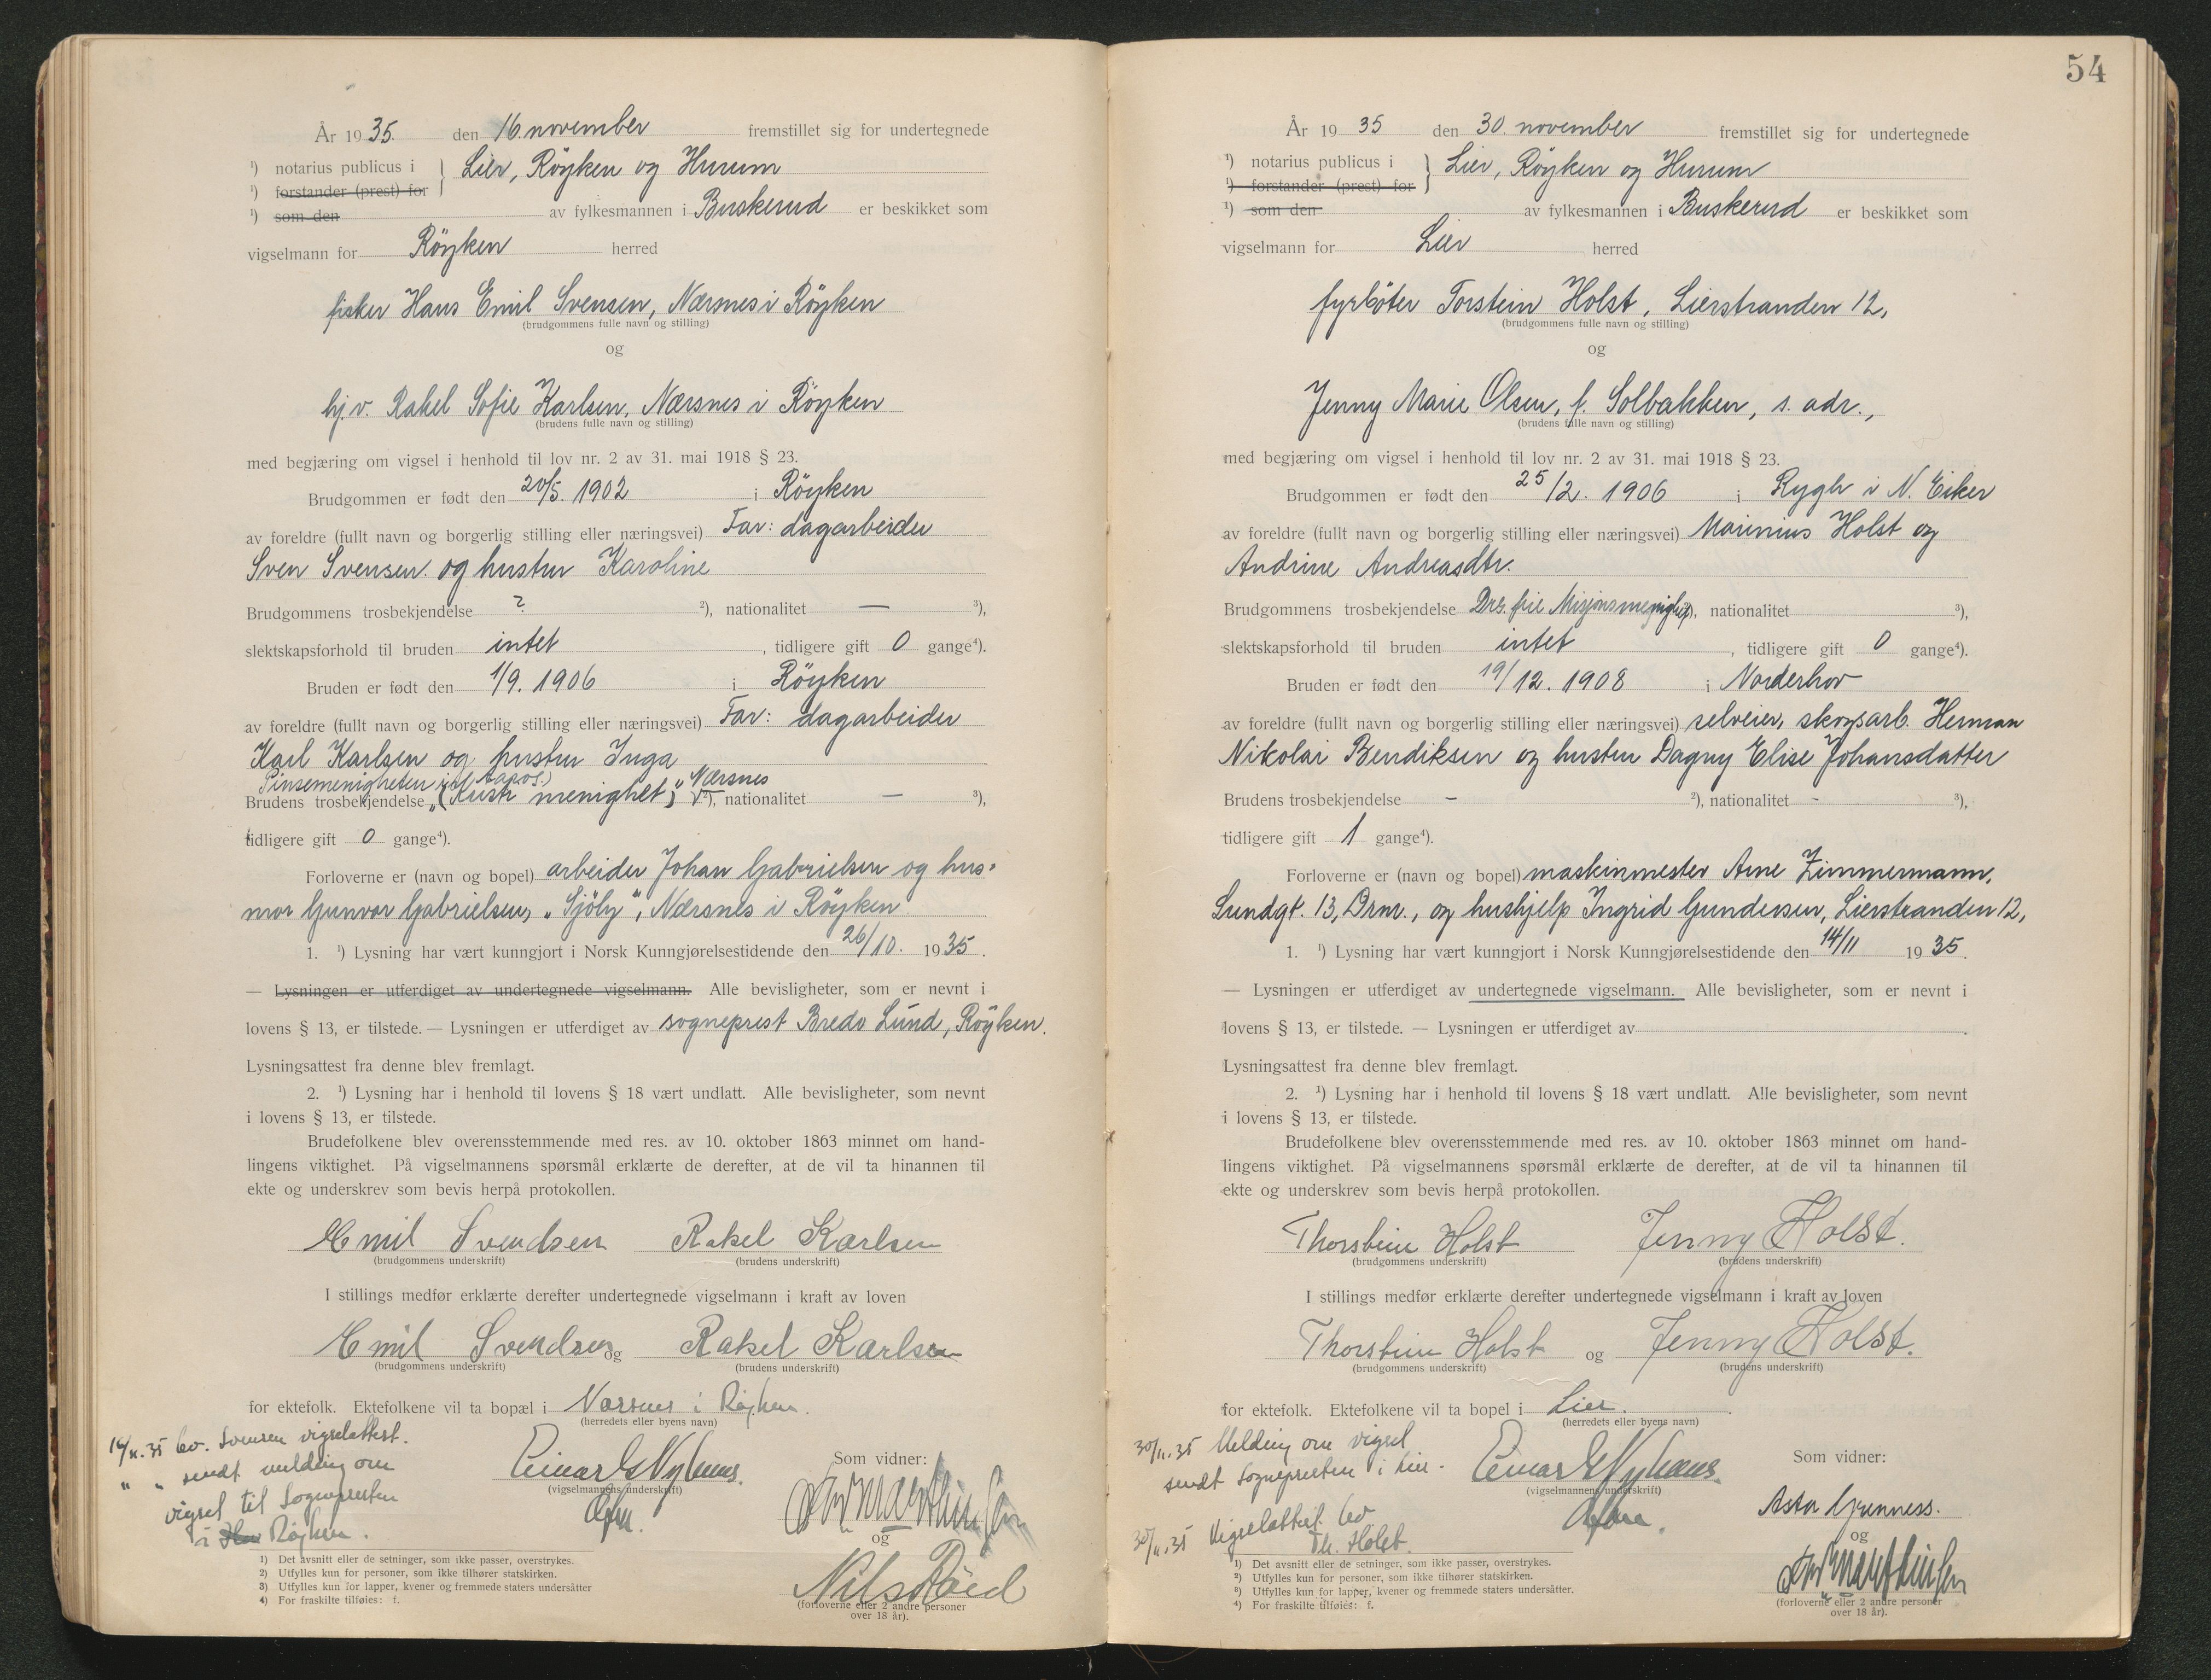 År 1935. den 16. november fremstillet sig for undertegnede
¹) notarius publicus i } Lier, Röyken og Hurum
¹) forstander (prest) for
¹) som den av fylkesmannen i Buskerud er beskikket som
vigselmann for Röyken herred
fisker Hans Emil Svensen, Nærsnes i Röyken
(brudgommens fulle navn og stilling)
og
hj.v. Rakel Sofie Karlsen, Nærsnes i Röyken
(brudens fulle navn og stilling)
med begjæring om vigsel i henhold til lov nr. 2 av 31. mai 1918 § 23.
Brudgommen er født den 20/5. 1902 i Röyken
av foreldre (fullt navn og borgerlig stilling eller næringsvei) Far: dagarbeider
Sven Svensen og hustru Karoline
Brudgommens trosbekjendelse ? ²), nationalitet — ³),
slektskapsforhold til bruden intet, tidligere gift 0 gange⁴).
Bruden er født den 1/9. 1906 i Röyken
av foreldre (fullt navn og borgerlig stilling eller næringsvei) Far: dagarbeider
Karl Karlsen og hustru Inga
Pinsemenigheten
Nærsnes
Brudens trosbekjendelse menighet ²), nationalitet — ³),
tidligere gift 0 gange⁴).
Forloverne er (navn og bopel) arbeider Johan Gabrielsen og hus-
mor Gunvor Gabrielsen, „Sjöly“, Nærsnes i Röyken
1. ¹) Lysning har vært kunngjort i Norsk Kunngjørelsestidende den 26/10. 1935.
— Lysningen er utferdiget av undertegnede vigselmann. Alle bevisligheter, som er nevnt i
lovens § 13, er tilstede. — Lysningen er utferdiget av sogneprest Bredo Lund, Röyken.
Lysningsattest fra denne blev fremlagt.
2. ¹) Lysning har i henhold til lovens § 18 vært undlatt. Alle bevisligheter, som nevnt
i lovens § 13, er tilstede.
Brudefolkene blev overensstemmende med res. av 10. oktober 1863 minnet om hand-
lingens viktighet. På vigselmannens spørsmål erklærte de derefter, at de vil ta hinannen til
ekte og underskrev som bevis herpå protokollen.
Emil Svendsen Rakel Karlsen
(brudgommens underskrift) (brudens underskrift)
I stillings medfør erklærte derefter undertegnede vigselmann i kraft av loven
Emil Svendsen og Rakel Karlsen
(brudgommens underskrift) (brudens underskrift)
for ektefolk. Ektefolkene vil ta bopæl i Nærsnes i Røyken.
(herredets eller byens navn)
16/11.35 lev. Svensen vigselattest.
" " sendt melding om
vigsel til Sognepresten
i Røyken.
Einar Nyhuus
(vigselmannens underskrift)
Som vidner:
og
Nils
(forloverne eller 2 andre personer
over 18 år).
1) Det avsnitt eller de setninger, som ikke passer, overstrykes.
2) Utfylles kun for personer, som ikke tilhører statskirken.
3) Utfylles kun for lapper, kvener og fremmede staters undersåtter
4) For fraskilte tilføies: f.
54
År 1935 den 30. november fremstillet sig for undertegnede
¹) notarius publicus i } Lier, Röyken og Hurum
¹) forstander (prest) for
¹) som den av fylkesmannen i Buskerud er beskikket som
vigselmann for Lier herred
fyrböter Torstein Holst, Lierstranden 12,
(brudgommens fulle navn og stilling)
og
Jenny Marie Olsen, f. Solbakken, s. adr.,
(brudens fulle navn og stilling)
med begjæring om vigsel i henhold til lov nr. 2 av 31. mai 1918 § 23.
Brudgommen er født den 25/2. 1906 i Rygh i N. Eiker
av foreldre (fullt navn og borgerlig stilling eller næringsvei) Marinius Holst og
Andrine Andreasdtr.
Brudgommens trosbekjendelse Drs. frie Misjonsmenighet ²), nationalitet ³),
slektskapsforhold til bruden intet, tidligere gift 0 gange⁴).
Bruden er født den 19/12. 1908 i Norderhov
av foreldre (fullt navn og borgerlig stilling eller næringsvei) selveier, skogsarb. Herman
Nikolai Bendiksen og hustru Dagny Elise Johansdatter
Brudens trosbekjendelse - ²), nationalitet - ³),
tidligere gift 1 gange⁴).
Forloverne er (navn og bopel) maskinmester Arne Zimmermann,
Sundgt. 13, Drm., og hushjelp Ingrid Gundersen, Lierstranden 12,
1. ¹) Lysning har vært kunngjort i Norsk Kunngjørelsestidende den 14/11 1935.
— Lysningen er utferdiget av undertegnede vigselmann. Alle bevisligheter, som er nevnt i
lovens § 13, er tilstede. — Lysningen er utferdiget av
Lysningsattest fra denne blev fremlagt.
2. ¹) Lysning har i henhold til lovens § 18 vært undlatt. Alle bevisligheter, som nevnt
i lovens § 13, er tilstede.
Brudefolkene blev overensstemmende med res. av 10. oktober 1863 minnet om hand-
lingens viktighet. På vigselmannens spørsmål erklærte de derefter, at de vil ta hinannen til
ekte og underskrev som bevis herpå protokollen.
Thorstein Holst Jenny Holst.
(brudgommens underskrift) (brudens underskrift)
I stillings medfør erklærte derefter undertegnede vigselmann i kraft av loven
Thorstein Holst og Jenny Holst.
(brudgommens underskrift) (brudens underskrift)
for ektefolk. Ektefolkene vil ta bopel i Lier.
(herredets eller byens navn)
30/11.35 Melding om vigsel
sendt Sognepresten i Lier.
30/11.35 Vigselattest lev.
Th. Holst.
Einar Nyhuus
(vigselmannens underskrift)
Som vidner:
Asta Grenness.
og
(forloverne eller 2 andre personer
over 18 år).
1) Det avsnitt eller de setninger, som ikke passer, overstrykes.
2) Utfylles kun for personer, som ikke tilhører statskirken.
3) Utfylles kun for lapper, kvener og fremmede staters undersåtter.
4) For fraskilte tilføies: f.